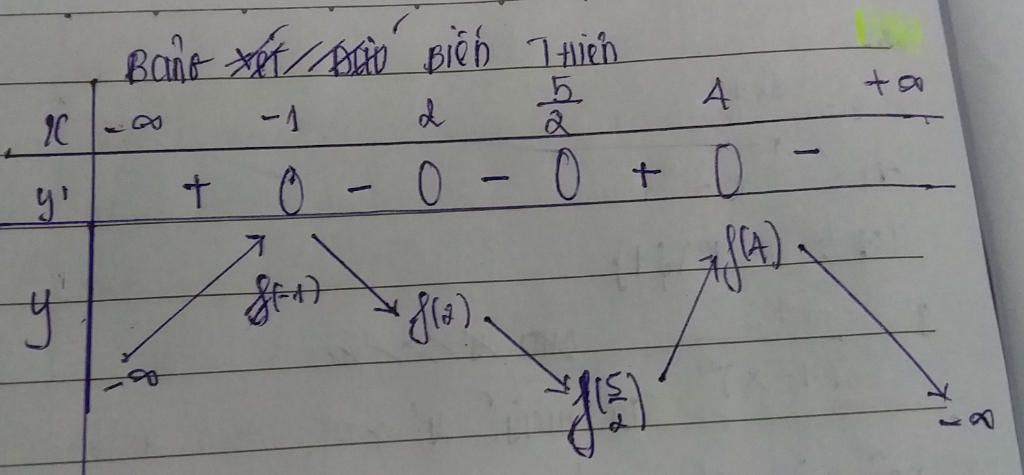 Bảng Biến Thiên
x -∞ -1 2 5/2 4 +∞
y' + 0 - 0 - 0 + 0 -
y -∞ f(-1) f(2) f(5/2) f(4) -∞